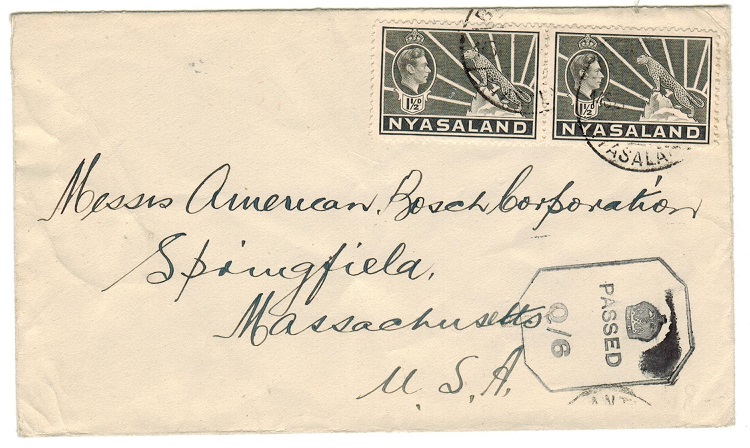 1½D 1½D
NYASALAND NYASALAND
YASALA
Messrs American Bosch Corporation
Springfield,
Massachusetts
U.S.A.
PASSED
Q/6